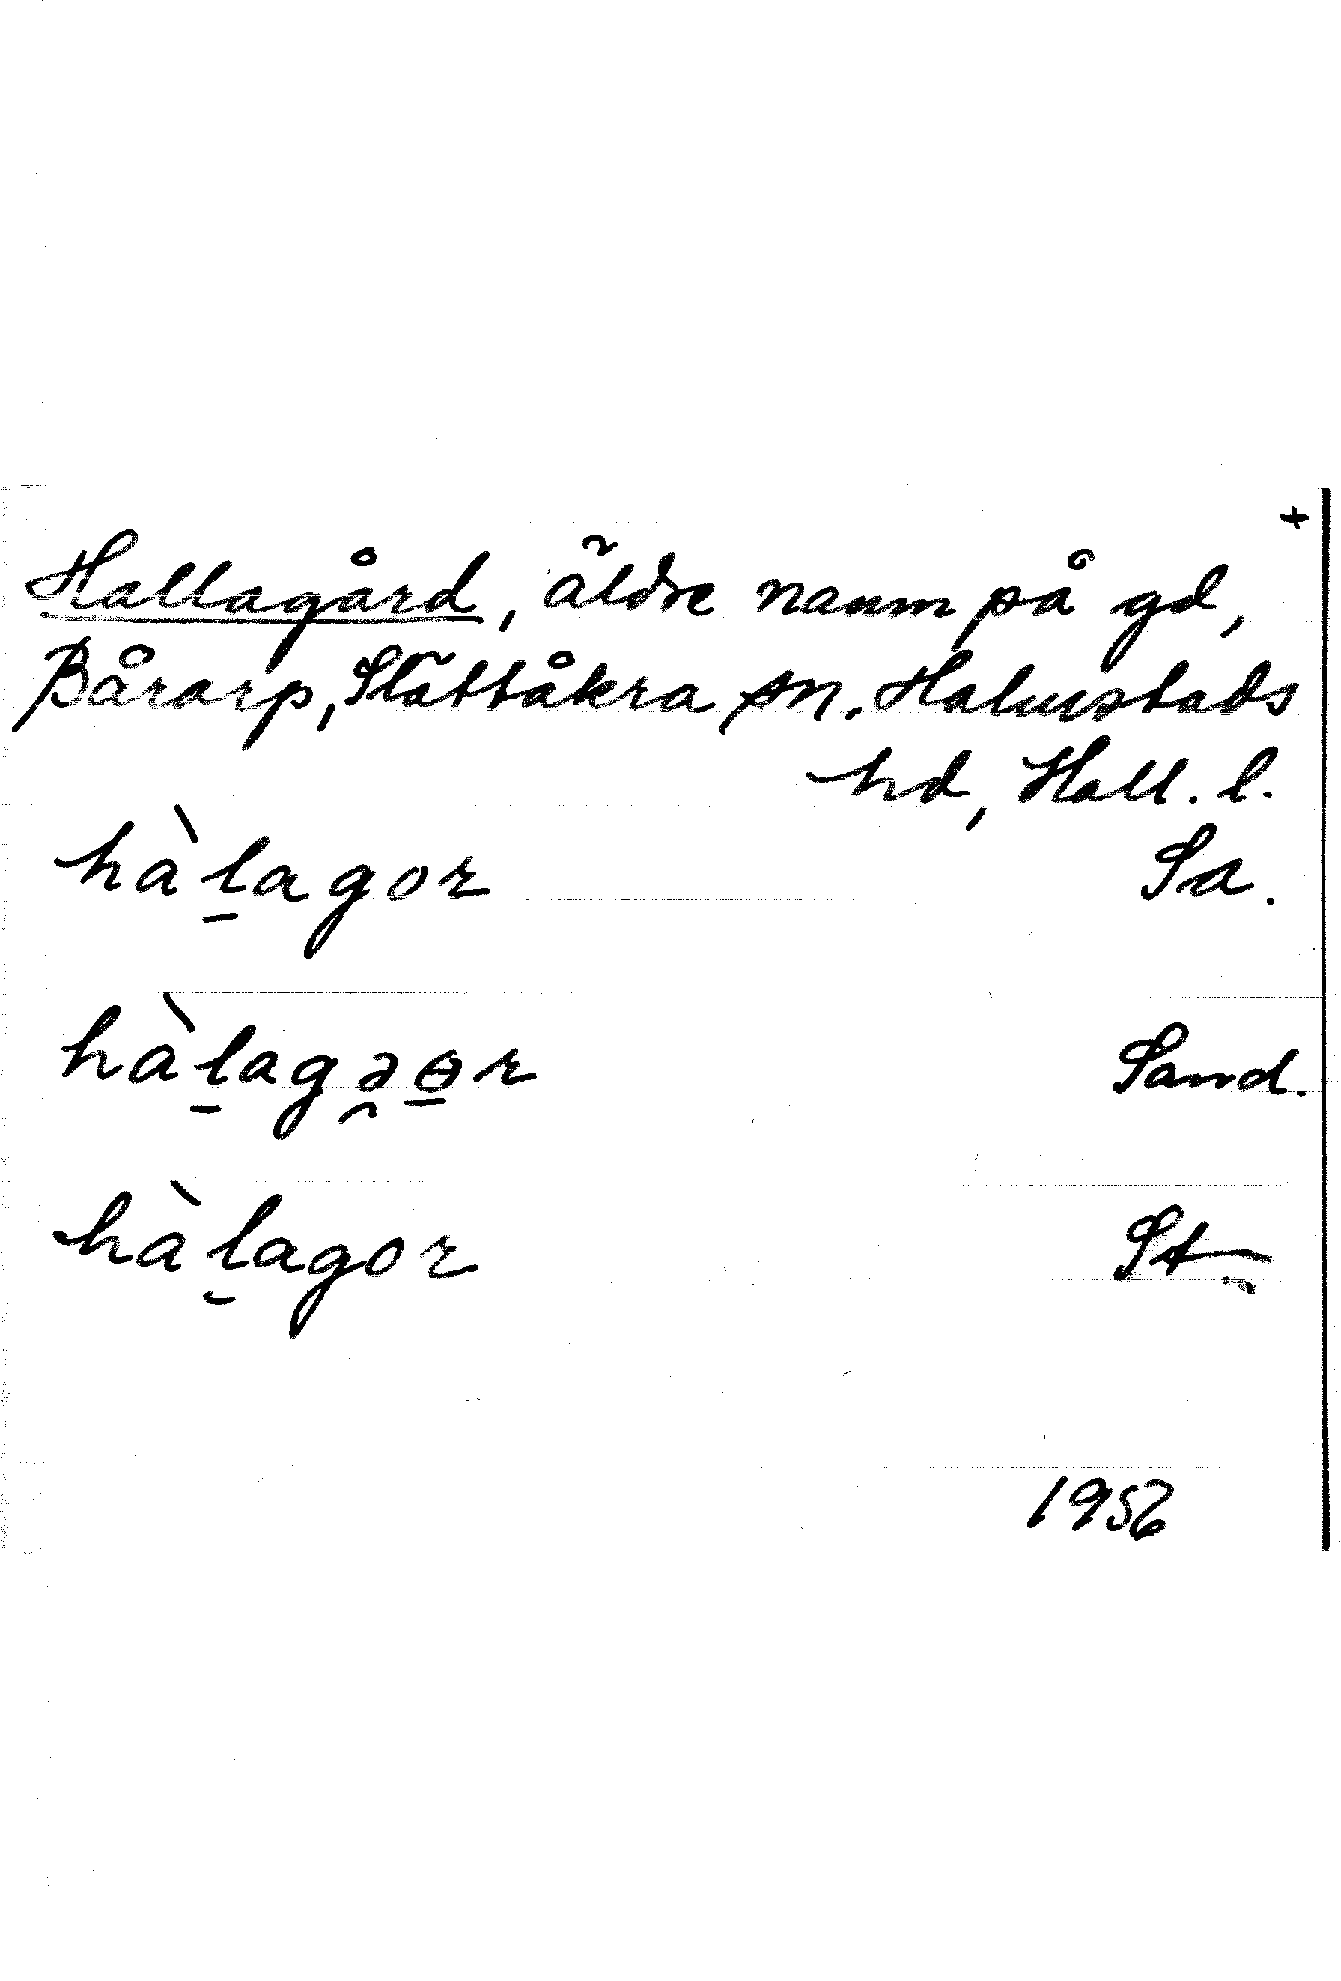 +
Hallagård, äldre namn på gd,
Bårarp, Slättåkra sn. Halmstads
hd, Hall. l.
hàl̠agor Sa.
hàl̠agə̯ɵ̠r Sand.
hàl̠agor St
1956